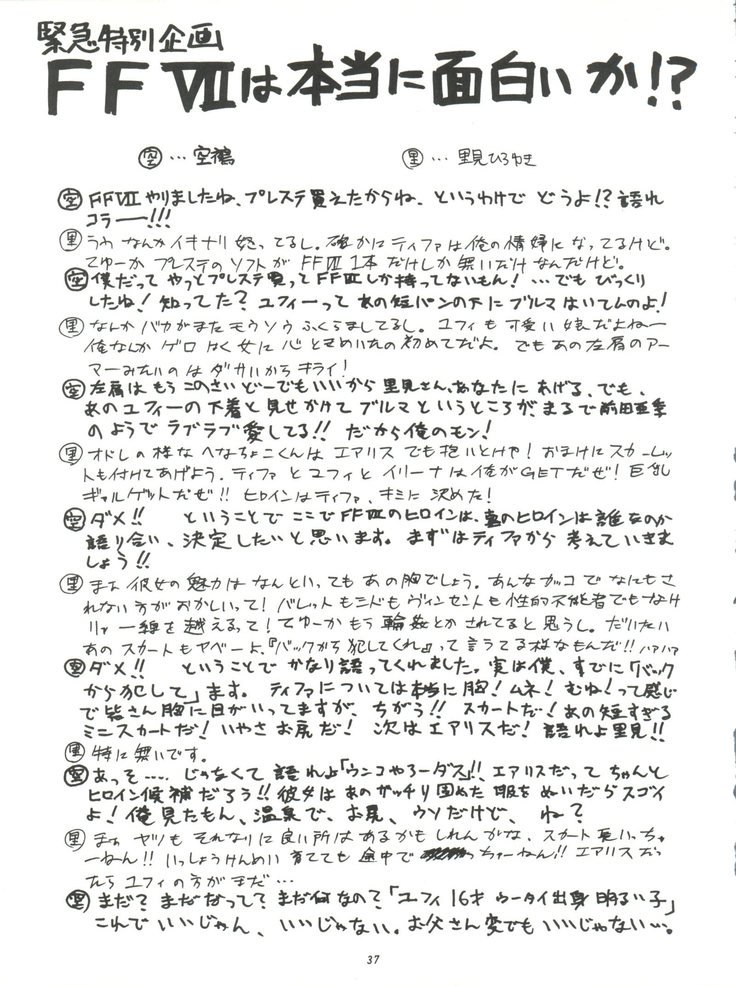 緊急特別企画
FFⅦは本当に面白いか!?
空…空鵺
里…里見ひろゆき
空 FFⅦやりましたね、プレステ買えたからね、というわけで どうよ!? 語れ
コラー!!!
里 うわ なんか イキナリ 怒ってるし。確かに ティファは俺の情婦に なってるけど。
てゆーか プレステのソフトが FFⅦ 1本だけしか 無いだけなんだけど。
空 僕だって やっとプレステ買って FFⅦしか持ってないもん! …でも びっくり
したね! 知ってた? ユフィーって あの短パンの下に ブルマはいてんのよ!
里 なんか バカがまた モウソウ ふくらましてるし。ユフィも 可愛い 娘だよねー
俺なんか ゲロ はく女に 心ときめいたの初めてだよ。でもあの左肩のアー
マーみたいのは ダサいからキライ!
空 左肩は もう このさい どーでもいいから 里見さん、あなたに あげる、でも、
あのユフィーの下着と見せかけて ブルマ というところが、まるで 前田亜季
の ようで ラブラブ愛してる!! だから俺のモン!
里 オドレの様な へなちょこくんは エアリス でも抱いとけや! おまけに スカーレッ
トも付けてあげよう。ティファ と ユフィ と イリーナは俺がGETだぜ! 巨乳
ギャルゲットだぜ!! ヒロインはティファ、キミに 決めた!
空 ダメ!! ということで ここでFFⅦのヒロインは、真のヒロインは誰なのか
語り合い、決定したいと思います。まずはティファから 考えていきま
しょう!!
里 まぁ 彼女の魅力は なんといっても あの胸でしょう。あんなカッコで なにもさ
れない方が おかしいって! バレットもシドもヴィンセントも性的不能者でもなけ
りゃ 一線を越えるって! てゆーか もう 輪姦とかされてると思うし。だいたい
あの スカートもヤベーよ。『バックから 犯してくれ』って 言うてる様なもんだ!! ハァハァ
空 ダメ!! ということで かなり語ってくれました。実は僕、すでに「バック
から犯して」ます。 ティファについては本当に 胸! ムネ! むね! って感じ
で皆さん胸に目がいってますが、ちがう!! スカートだ! あの短すぎる
ミニスカートだ! いやさ お尻だ! 次は エアリスだ! 語れよ里見!!
里 特に無いです。
空 あっそ…… じゃなくて 語れよ「ウンコやろーダス」!! エアリスだって ちゃんと
ヒロイン候補だろう!! 彼女は あの ガッチリ固めた 服を ぬいだら スゴイ
よ! 俺見たもん、温泉で、お尻、ウソだけど、 ね?
里 まぁ ヤツも それなりに 良い所は あるかもしれん がな、スカート 長いっちゅ
ーねん!! いっしょうけんめい 育てても 途中で っちゅーねん!! エアリスだっ
たら ユフィの方がまだ…
空 まだ? まだ なって? まだ何なの? 「ユフィ 16才 ウータイ出身 明るい子」
これで いいじゃん、 いいじゃない。お父さん変でも いいじゃない…。
37